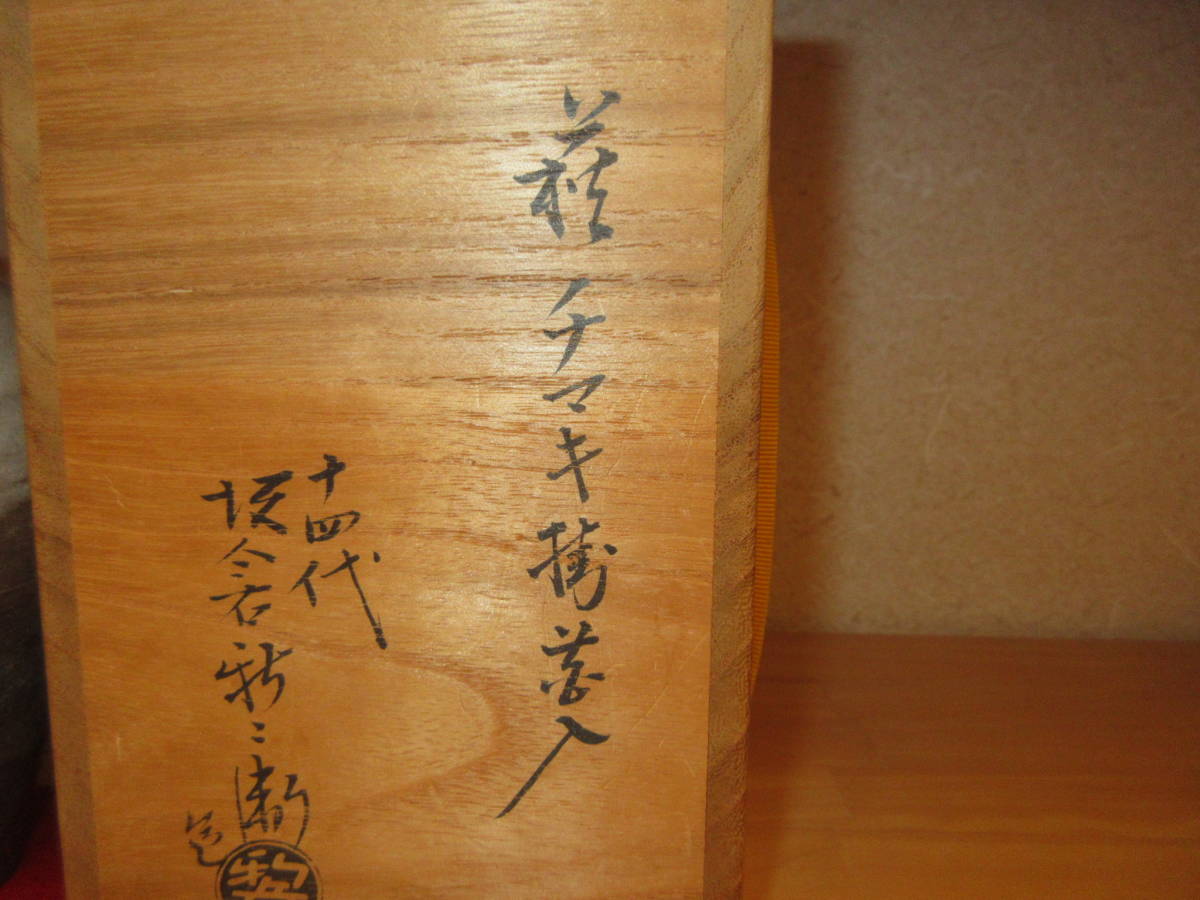 萩チマキ掛花入
十四代
坂倉新兵衛
造